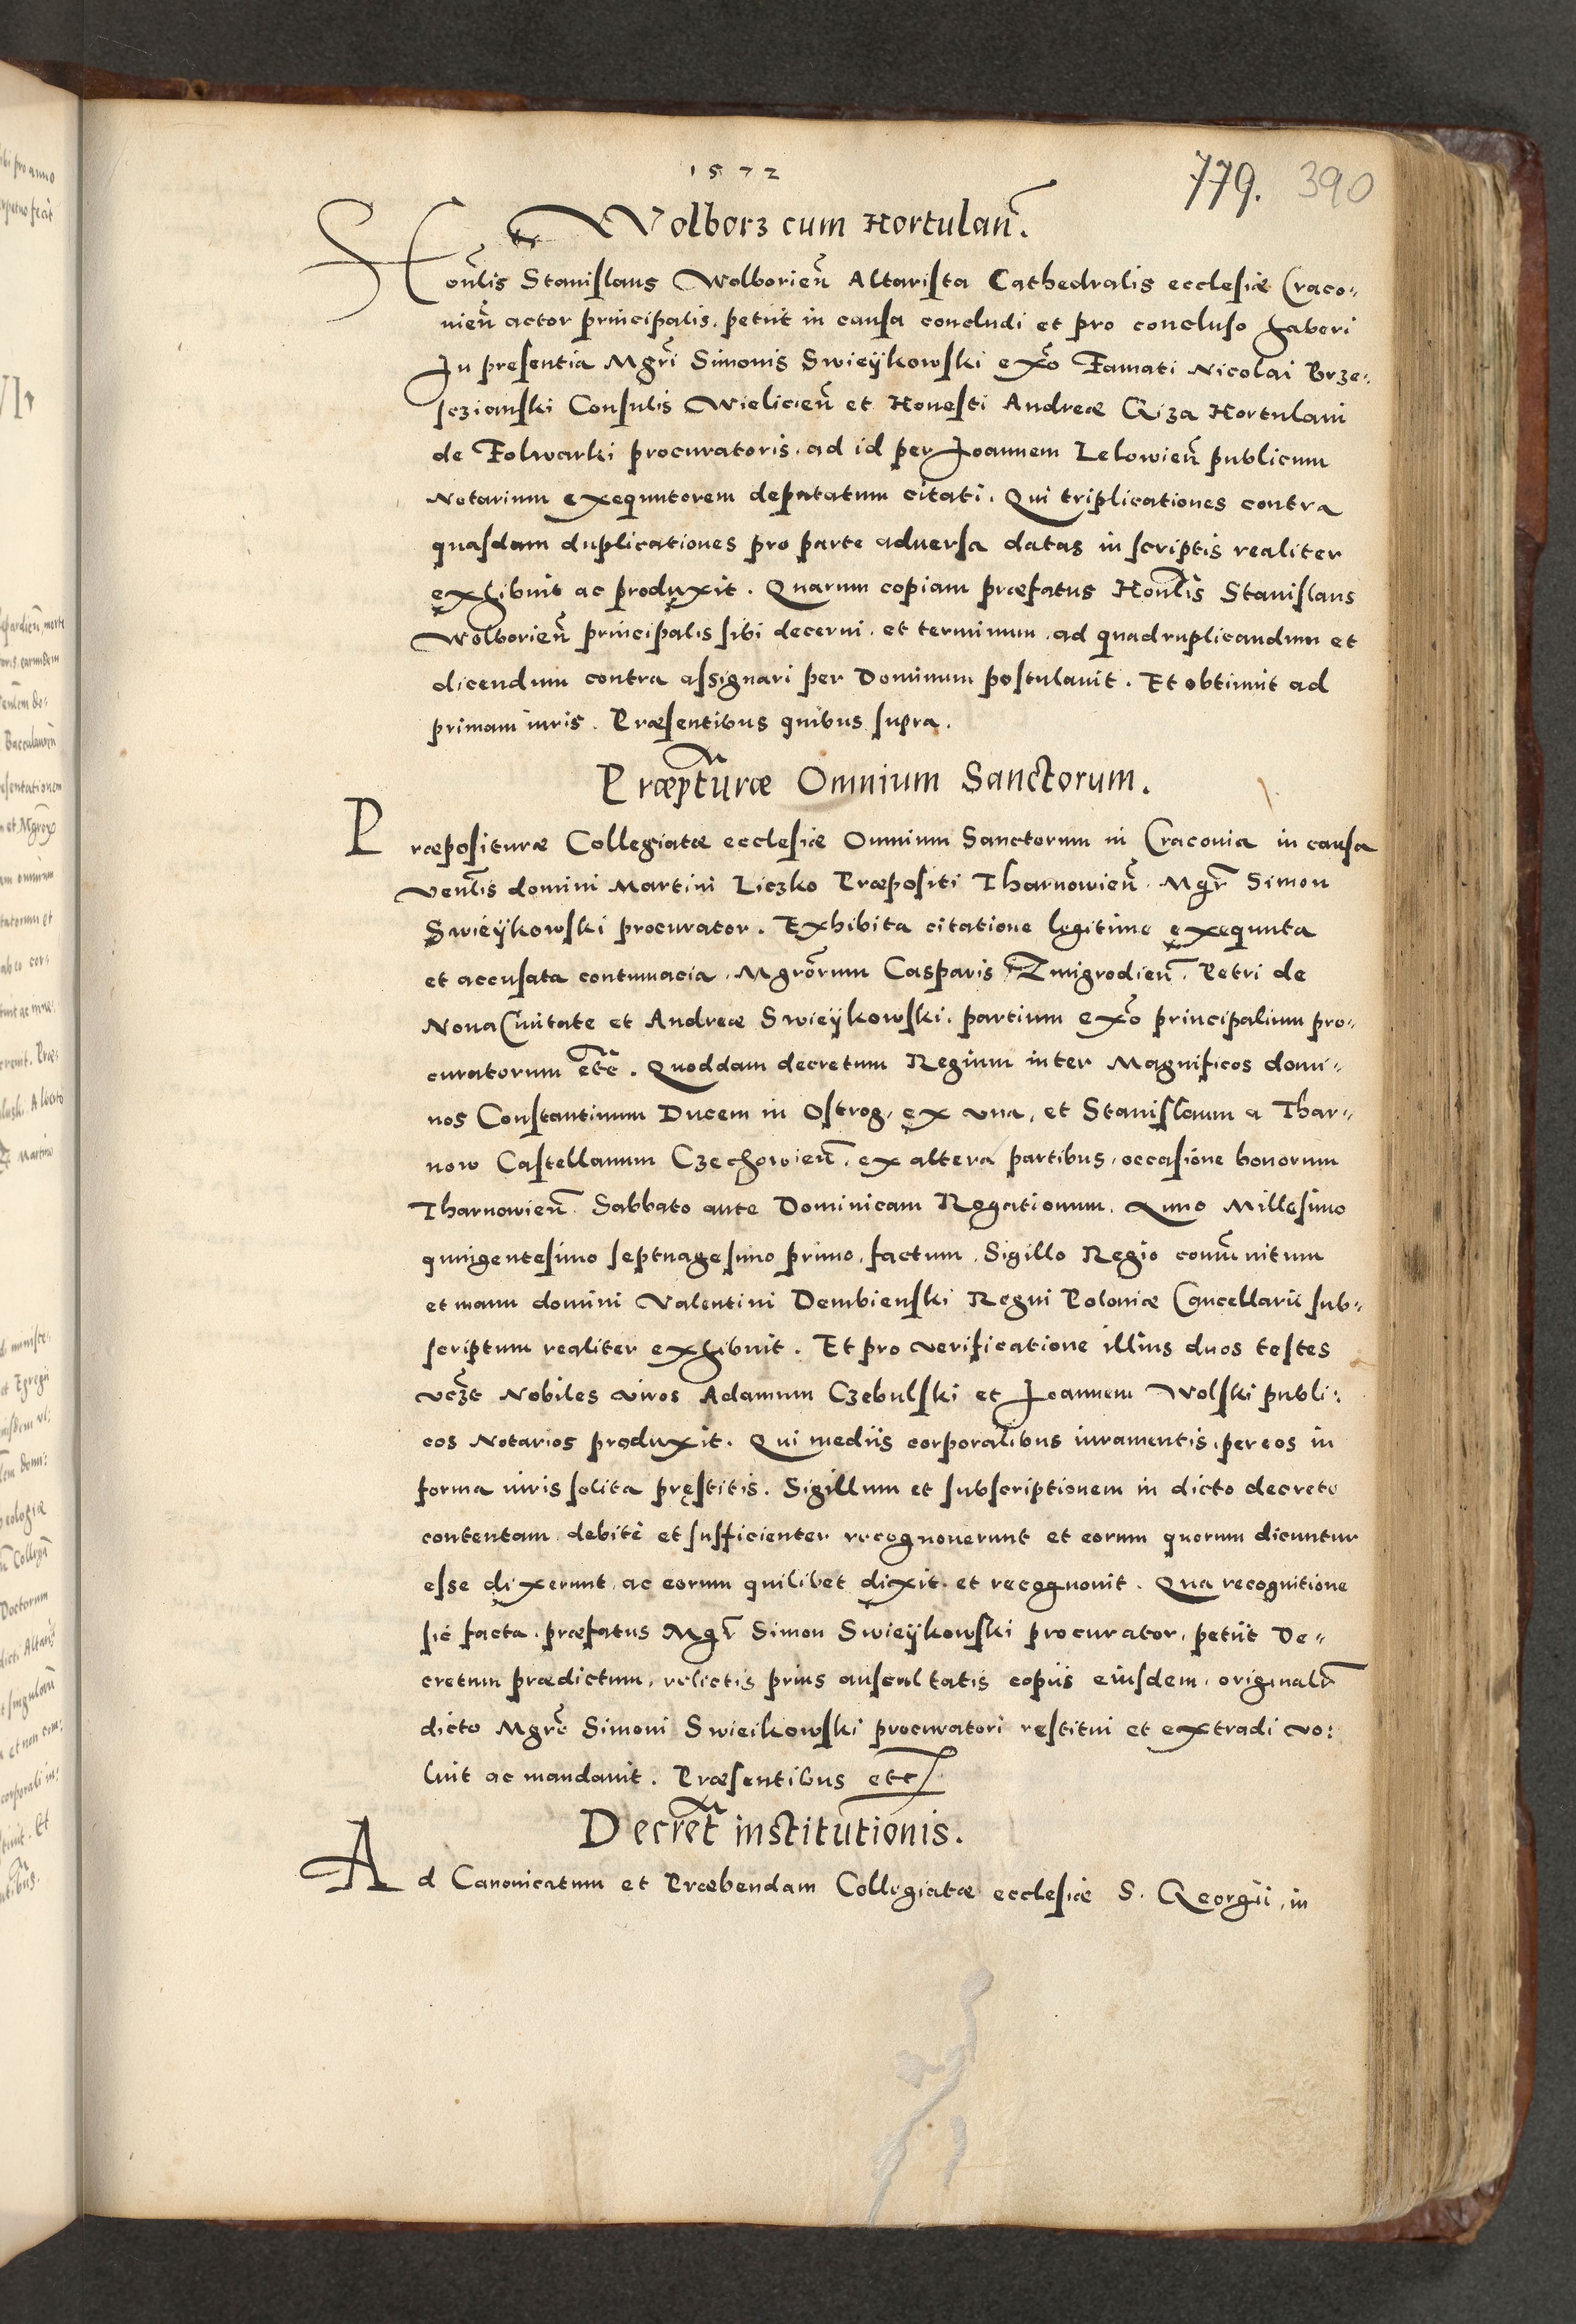 1572
779. 390
Wolborz cum Hortulan̄.
Hon̄lis Stanislaus Wolborien̄ Altarista Cathedralis ecclesiæ Craco-
uien̄ actor principalis, petiit in causa concludi et pro concluso haberi
In presentia Mgr̄i Simonis Swieÿkowski ex̄o Famati Nicolai Brze-
sczianski Consulis Wielicien̄ et Honesti Andreæ Giza Hortulani
de Folwarki procuratoris, ad id per Joannem Lelowien̄ publicum
Notarium exequutorem deputatum citati. Qui triplicationes contra
quasdam duplicationes pro parte aduersa datas in scriptis realiter
exhibuit ac produxit. Quarum copiam præfatus Hon̄lis Stanislaus
Wolborien̄ principalis sibi decerni, et terminum ad quadruplicandum et
dicendum contra assignari per Dominum postulauit. Et obtinuit ad
primam iuris. Præsentibus quibus supra.
Præpt̄uræ Omnium Sanctorum.
Præposituræ Collegiatæ ecclesiæ Omnium Sanctorum in Craconia in causa
Ven̄lis domini Martini Liczko Præpositi Tharnowien̄. Mgr̄ Simon
Swieÿkowski procurator. Exhibita citatione legitime exequuta
et accusata contumacia, Mgr̄orum Casparis Zmigrodien̄. Petri de
Noua Ciuitate et Andreæ Swieÿkowski, partium ex̄o principalium pro-
curatorum etc̄. Quoddam decretum Regium inter Magnificos domi-
nos Constantinum Ducem in Ostrog, ex vna, et Stanislaum a Thar-
now Castellanum Czechowien̄, ex altera partibus, occasione bonorum
Tharnowien̄. Sabbato ante Dominicam Rogationum. Anno Millesimo
quingentesimo septuagesimo primo, factum, Sigillo Regio com̄unitum
et manu domini Valentini Dembienski Regni Poloniæ Cancellarii sub-
scriptum realiter exhibuit. Et pro verificatione illius duos testes
vcz̄t Nobiles viros Adamum Czebulski et Joannem Wolski publi:
cos Notarios produxit. Qui mediis corporalibus iuramentis, per eos in
forma iuris solita pręstitis. Sigillum et subscriptionem in dicto decreto
contentam debitè et sufficienter recognouerunt et eorum quorum dicuntur
esse dixerunt, ac eorum quilibet dixit et recognouit. Qua recognitione
sic facta, præfatus Mgr̄ Simon Swieÿkowski procurator, petiit De-
cretum prædictum, relictis prius auscultatis copiis eiusdem, originali
dicto Mgr̄o Simoni Swieikowski procuratori restitui et extradi vo:
luit ac mandauit. Præsentibus etc
Decret̄ institutionis.
Ad Canonicatum et Præbendam Collegiatæ ecclesiæ S. Georgii, in